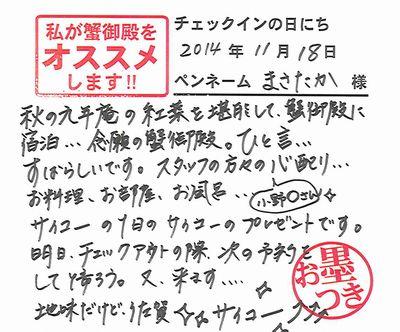 私が蟹御殿を
オススメ
します!!
チェックインの日にち
2014年11月18日
ペンネーム まさたか 様
秋の九年庵の紅葉を堪能して、蟹御殿に
宿泊… 念願の蟹御殿。ひと言…
すばらしいです。スタッフの方々の心配り…
お料理、お部屋、お風呂…
小野〇さん
サイコーの1日のサイコーのプレゼントです。
明日、チェックアウトの際、次の予約を
して帰ろう。又、来ます….
地味だけど、佐賀 サイコー
お墨つき